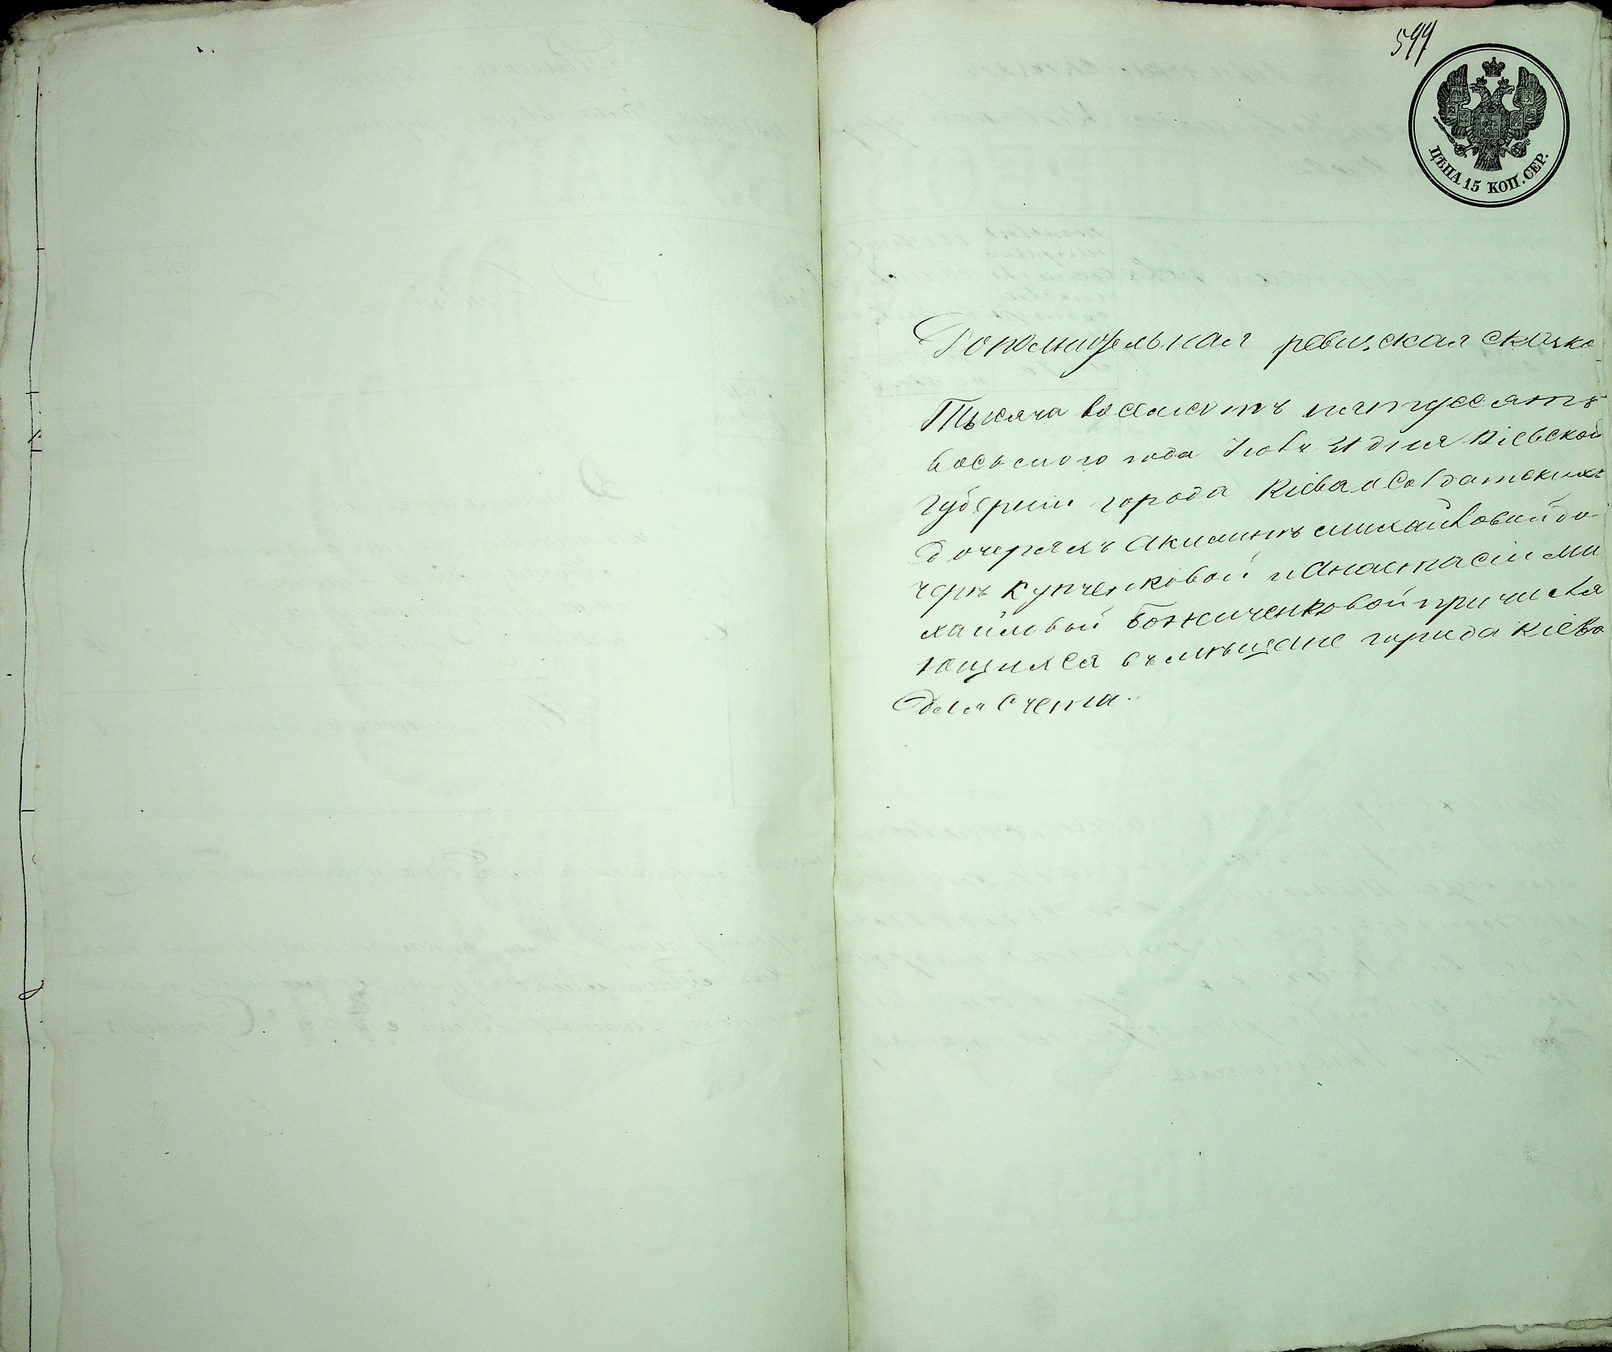 599
ЦѢНА 15 КОП. СЕР.
Дополнительная ревизская сказка
Тысяча восемьсотъ пятдесятъ
восьмого года Iюля 21 дня Кіевской
Губерніи города Кіева о Солдатскихъ
дочеряхъ Акилинѣ Михайловой до
черѣ Купченковой и Анастасіи Ми
хайловой Божиченковой причисля
ющихся въ мѣщане города Кіева
для счета.